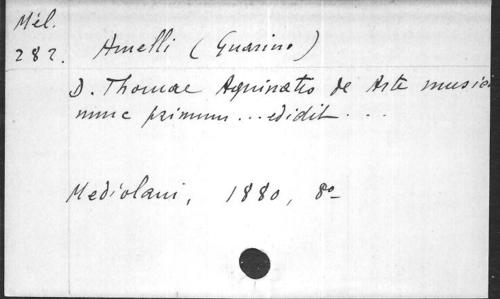 Mél.
282. Amelli (Guarino)
D. Thomae Aquinatis de Arte musica
nunc primum ... edidit ...
Mediolani, 1880, 8º